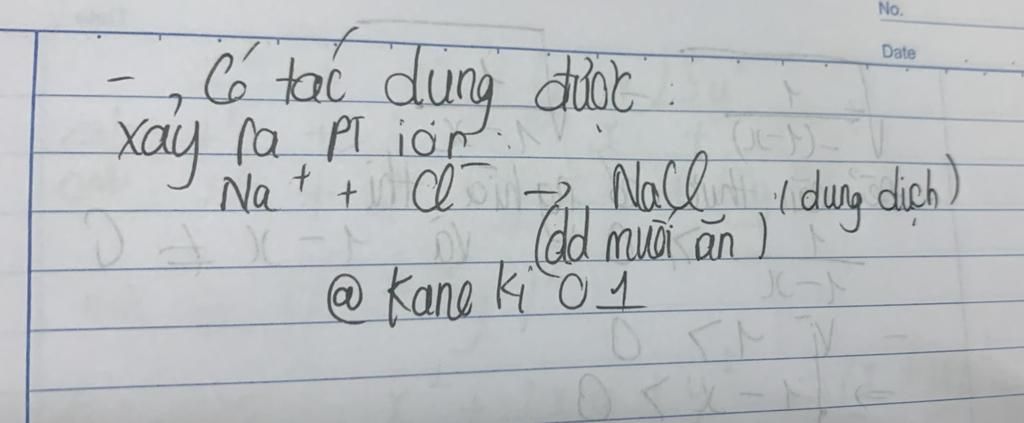 No.
Date
- , Có tác dụng được :
xảy ra PT ion :
Na⁺ + Cl⁻ → NaCl (dung dịch)
(dd muối ăn)
@ Kane ki 01